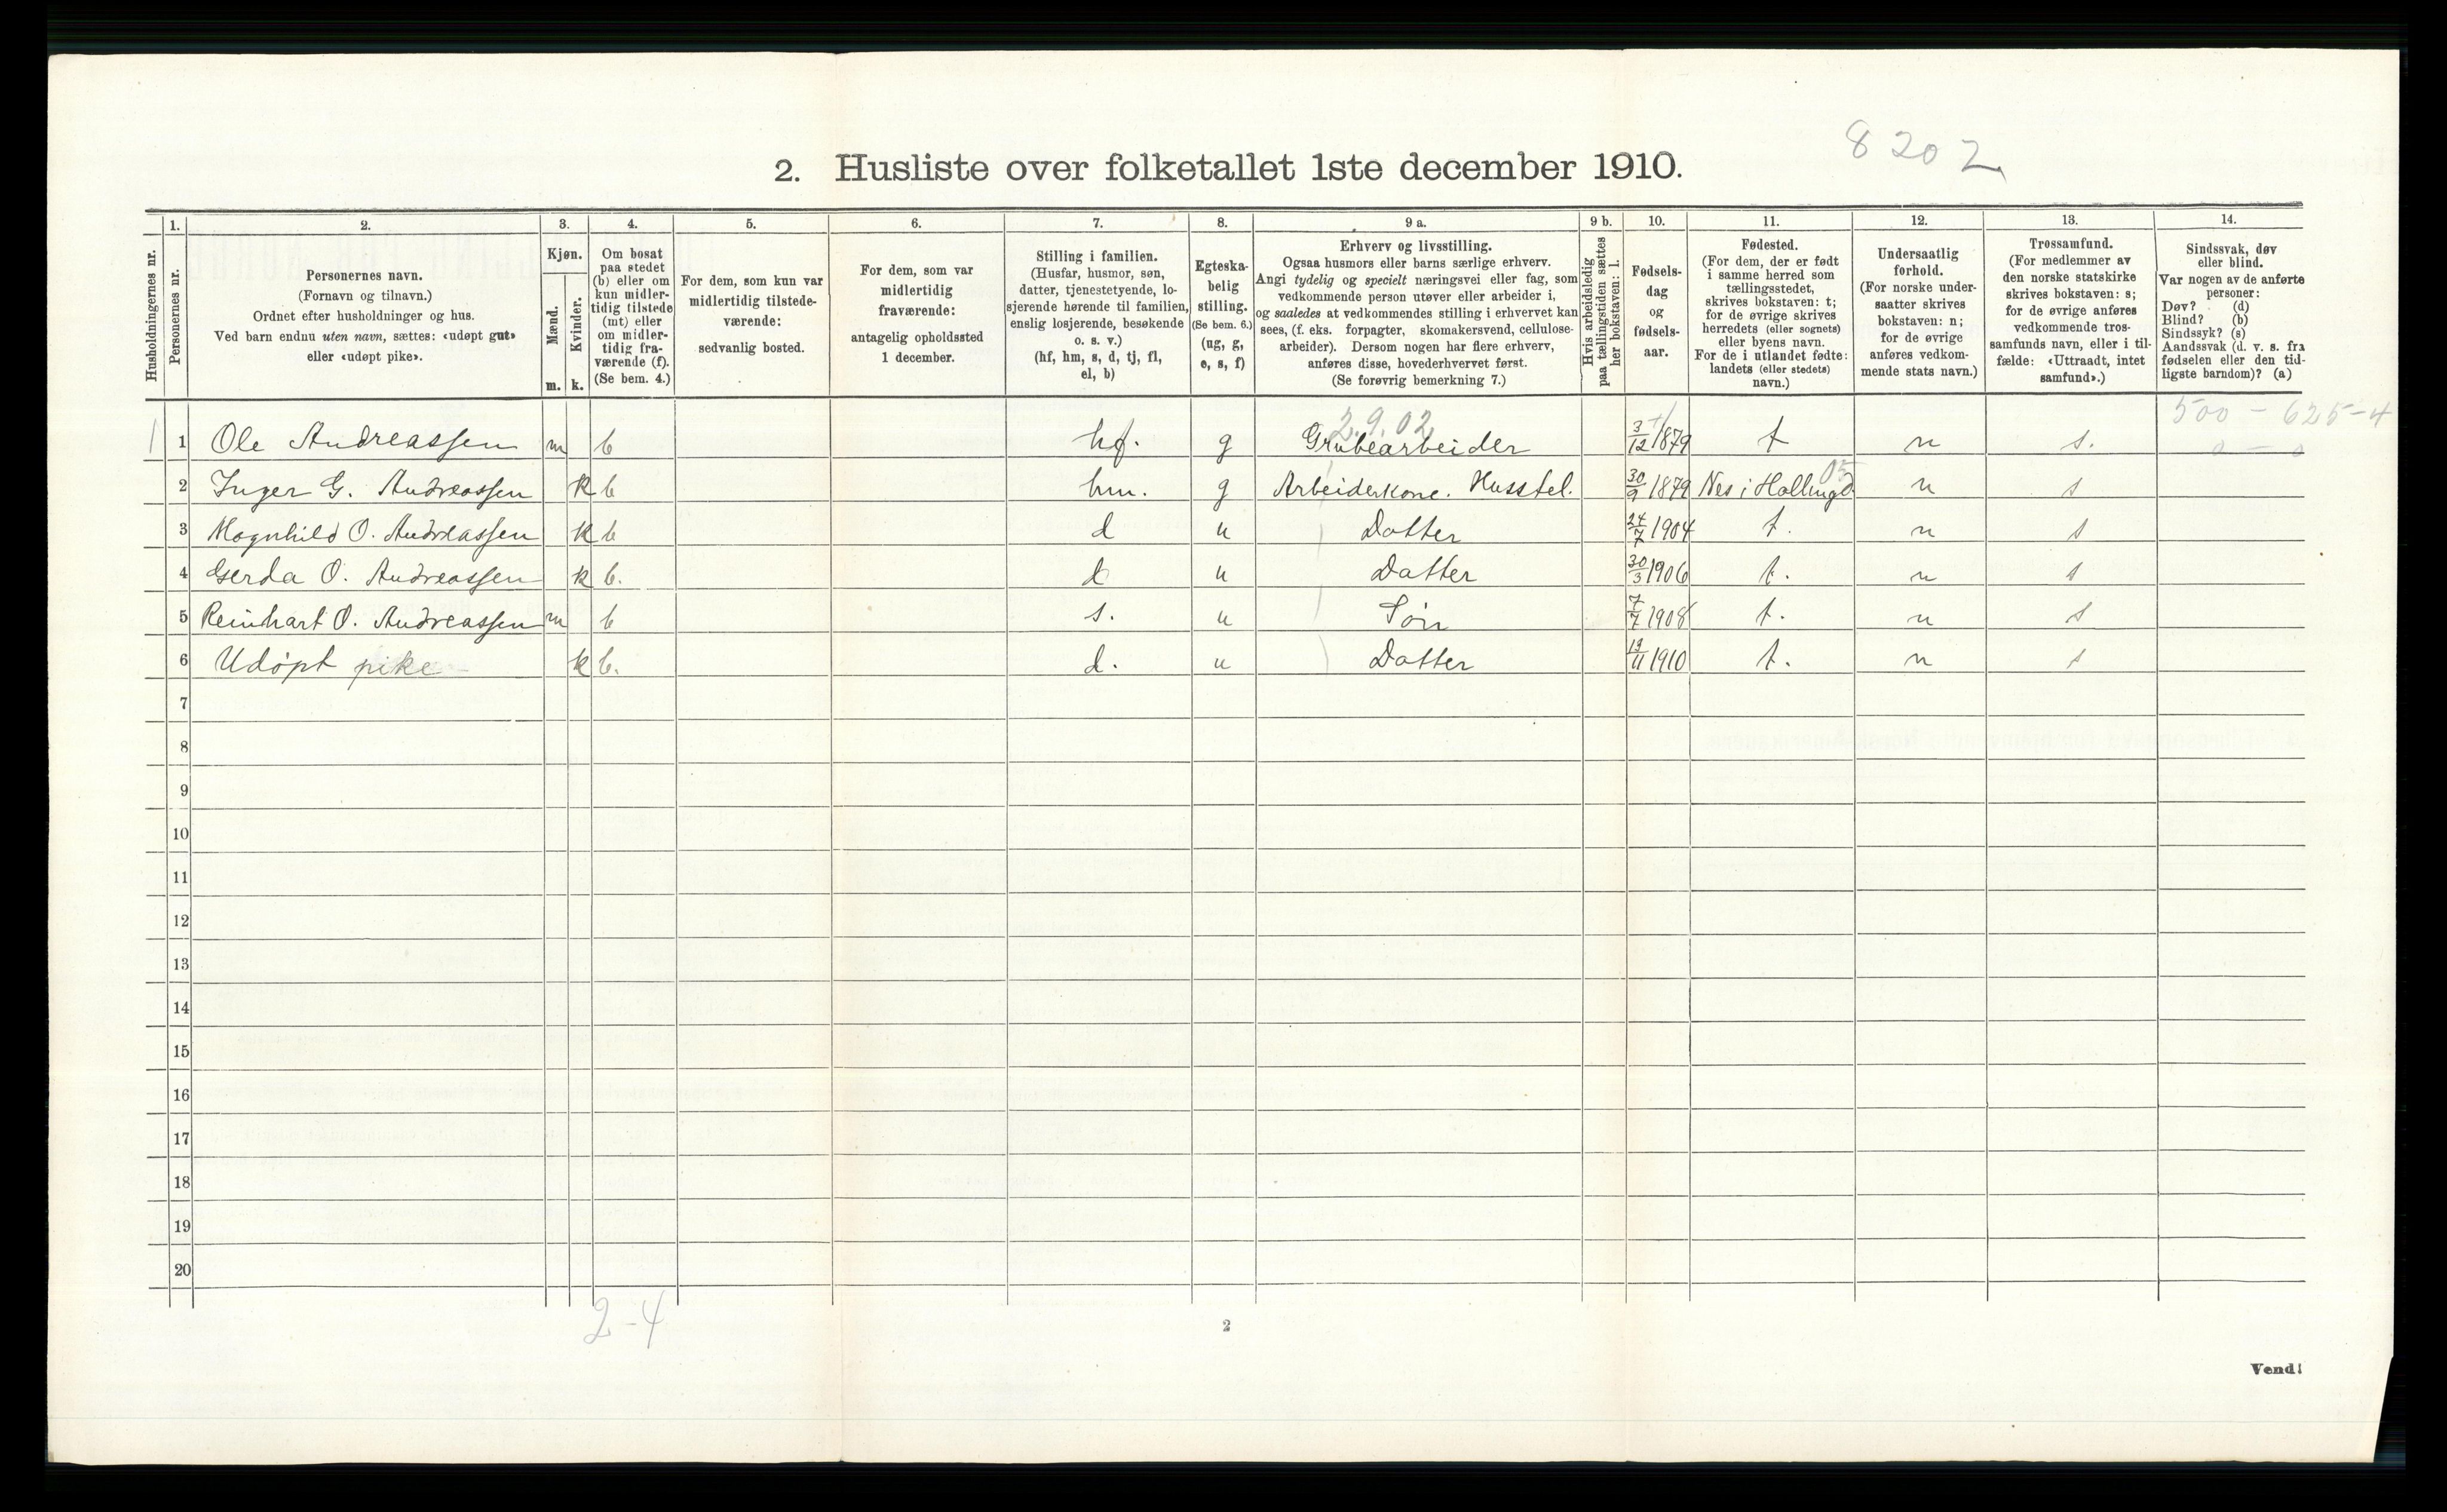 8202
2. Husliste over folketallet 1ste december 1910.
1. 2. 3. 4. 5. 6. 7. 8. 9 a. 9 b. 10. 11. 12. 13. 14.
Husholdningernes nr.
Personernes nr.
Personernes navn.
(Fornavn og tilnavn.)
Ordnet efter husholdninger og hus.
Ved barn endnu uten navn, sættes: «udøpt gut»
eller «udøpt pike».
Kjøn.
Mænd.
m.
Kvinder.
k.
Om bosat
paa stedet
(b) eller om
kun midler-
tidig tilstede
(mt) eller
om midler-
tidig fra-
værende (f).
(Se bem. 4.)
For dem, som kun var
midlertidig tilstede-
værende:
sedvanlig bosted.
For dem, som var
midlertidig
fraværende:
antagelig opholdssted
1 december.
Stilling i familien.
(Husfar, husmor, søn,
datter, tjenestetyende, lo-
sjerende hørende til familien,
enslig losjerende, besøkende
o. s. v.)
(hf, hm, s, d, tj, fl,
el, b)
Egteska-
belig
stilling.
(Se bem. 6.)
(ug, g,
e, s, f)
Erhverv og livsstilling.
Ogsaa husmors eller barns særlige erhverv.
Angi tydelig og specielt næringsvei eller fag, som
vedkommende person utøver eller arbeider i,
og saaledes at vedkommendes stilling i erhvervet kan
sees, (f. eks. forpagter, skomakersvend, cellulose-
arbeider). Dersom nogen har flere erhverv,
anføres disse, hovederhvervet først.
(Se forøvrig bemerkning 7.)
Hvis arbeidsledig
paa tællingstiden sættes
her bokstaven: l.
Fødsels-
dag
og
fødsels-
aar.
Fødested.
(For dem, der er født
i samme herred som
tællingsstedet,
skrives bokstaven: t;
for de øvrige skrives
herredets (eller sognets)
eller byens navn.
For de i utlandet fødte:
landets (eller stedets)
navn.)
Undersaatlig
forhold.
(For norske under-
saatter skrives
bokstaven: n;
for de øvrige
anføres vedkom-
mende stats navn.)
Trossamfund.
(For medlemmer av
den norske statskirke
skrives bokstaven: s;
for de øvrige anføres
vedkommende tros-
samfunds navn, eller i til-
fælde: «Uttraadt, intet
samfund».)
Sindssvak, døv
eller blind.
Var nogen av de anførte
personer:
Døv? (d)
Blind? (b)
Sindssyk? (s)
Aandssvak (d. v. s. fra
fødselen eller den tid-
ligste barndom)? (a)
2.9.02 500 - 625-4
1 1 Ole Andreassen m b hf. g Grubearbeider 3/12 1879 t n s. 0 - 0
05
2 Inger G. Andreassen k b hm. g Arbeiderkone. Husstel. 30/9 1879 Nes i Hallingd. n s
3 Magnhild O. Andreassen k b d u Datter 24/7 1904 t. n s
4 Gerda O. Andreassen k b. d u Datter 30/3 1906 t. n s
5 Reinhart O. Andreassen m b s. u Søn 7/7 1908 t. n s
6 Udøpt pike k b. d. u Datter 19/11 1910 t. n s
7
8
9
10
11
12
13
14
15
16
17
18
19
20
2-4
2
Vend!